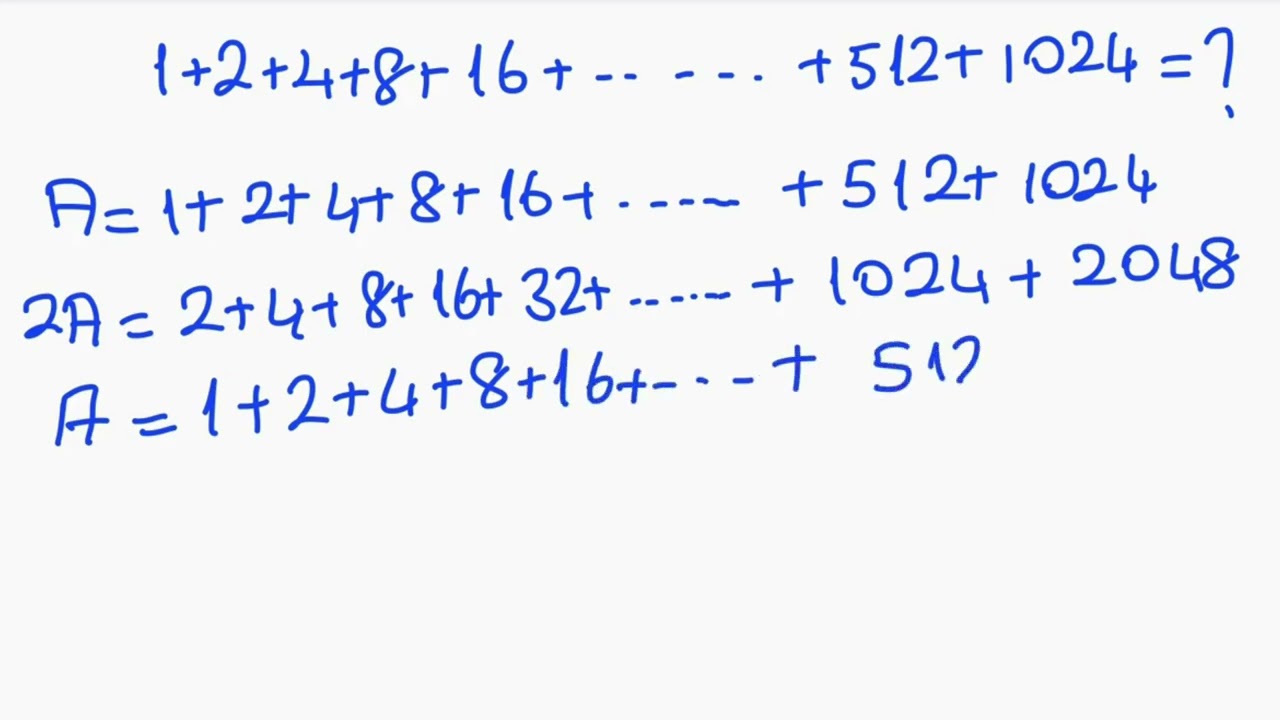 1+2+4+8+16+-- ---. +512+1024=?
A=1+2+4+8+16+.---- +512+1024
2A=2+4+8+16+32+......+1024+2048
A=1+2+4+8+16+---+ 512